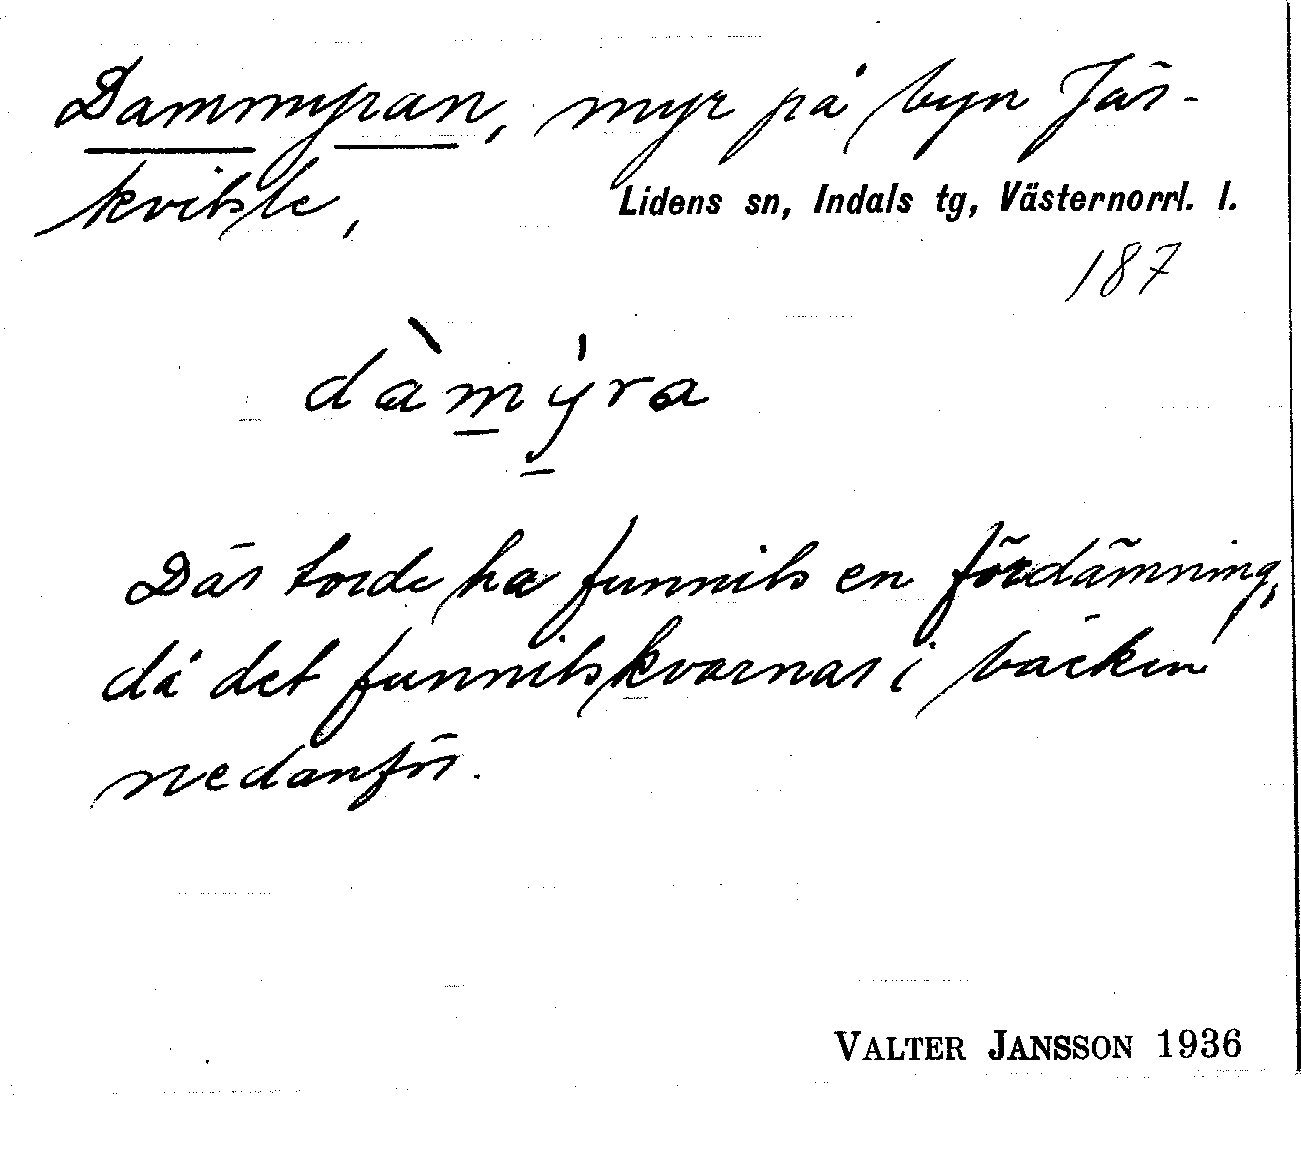 Dammyran, myr på byn Jär-
kvitsle,
Lidens sn, Indals tg, Västernorrl. l.
187
dàmýra
Där torde ha funnits en fördämning,
då det funnits kvarnar i bäcken
nedanför.
VALTER JANSSON 1936